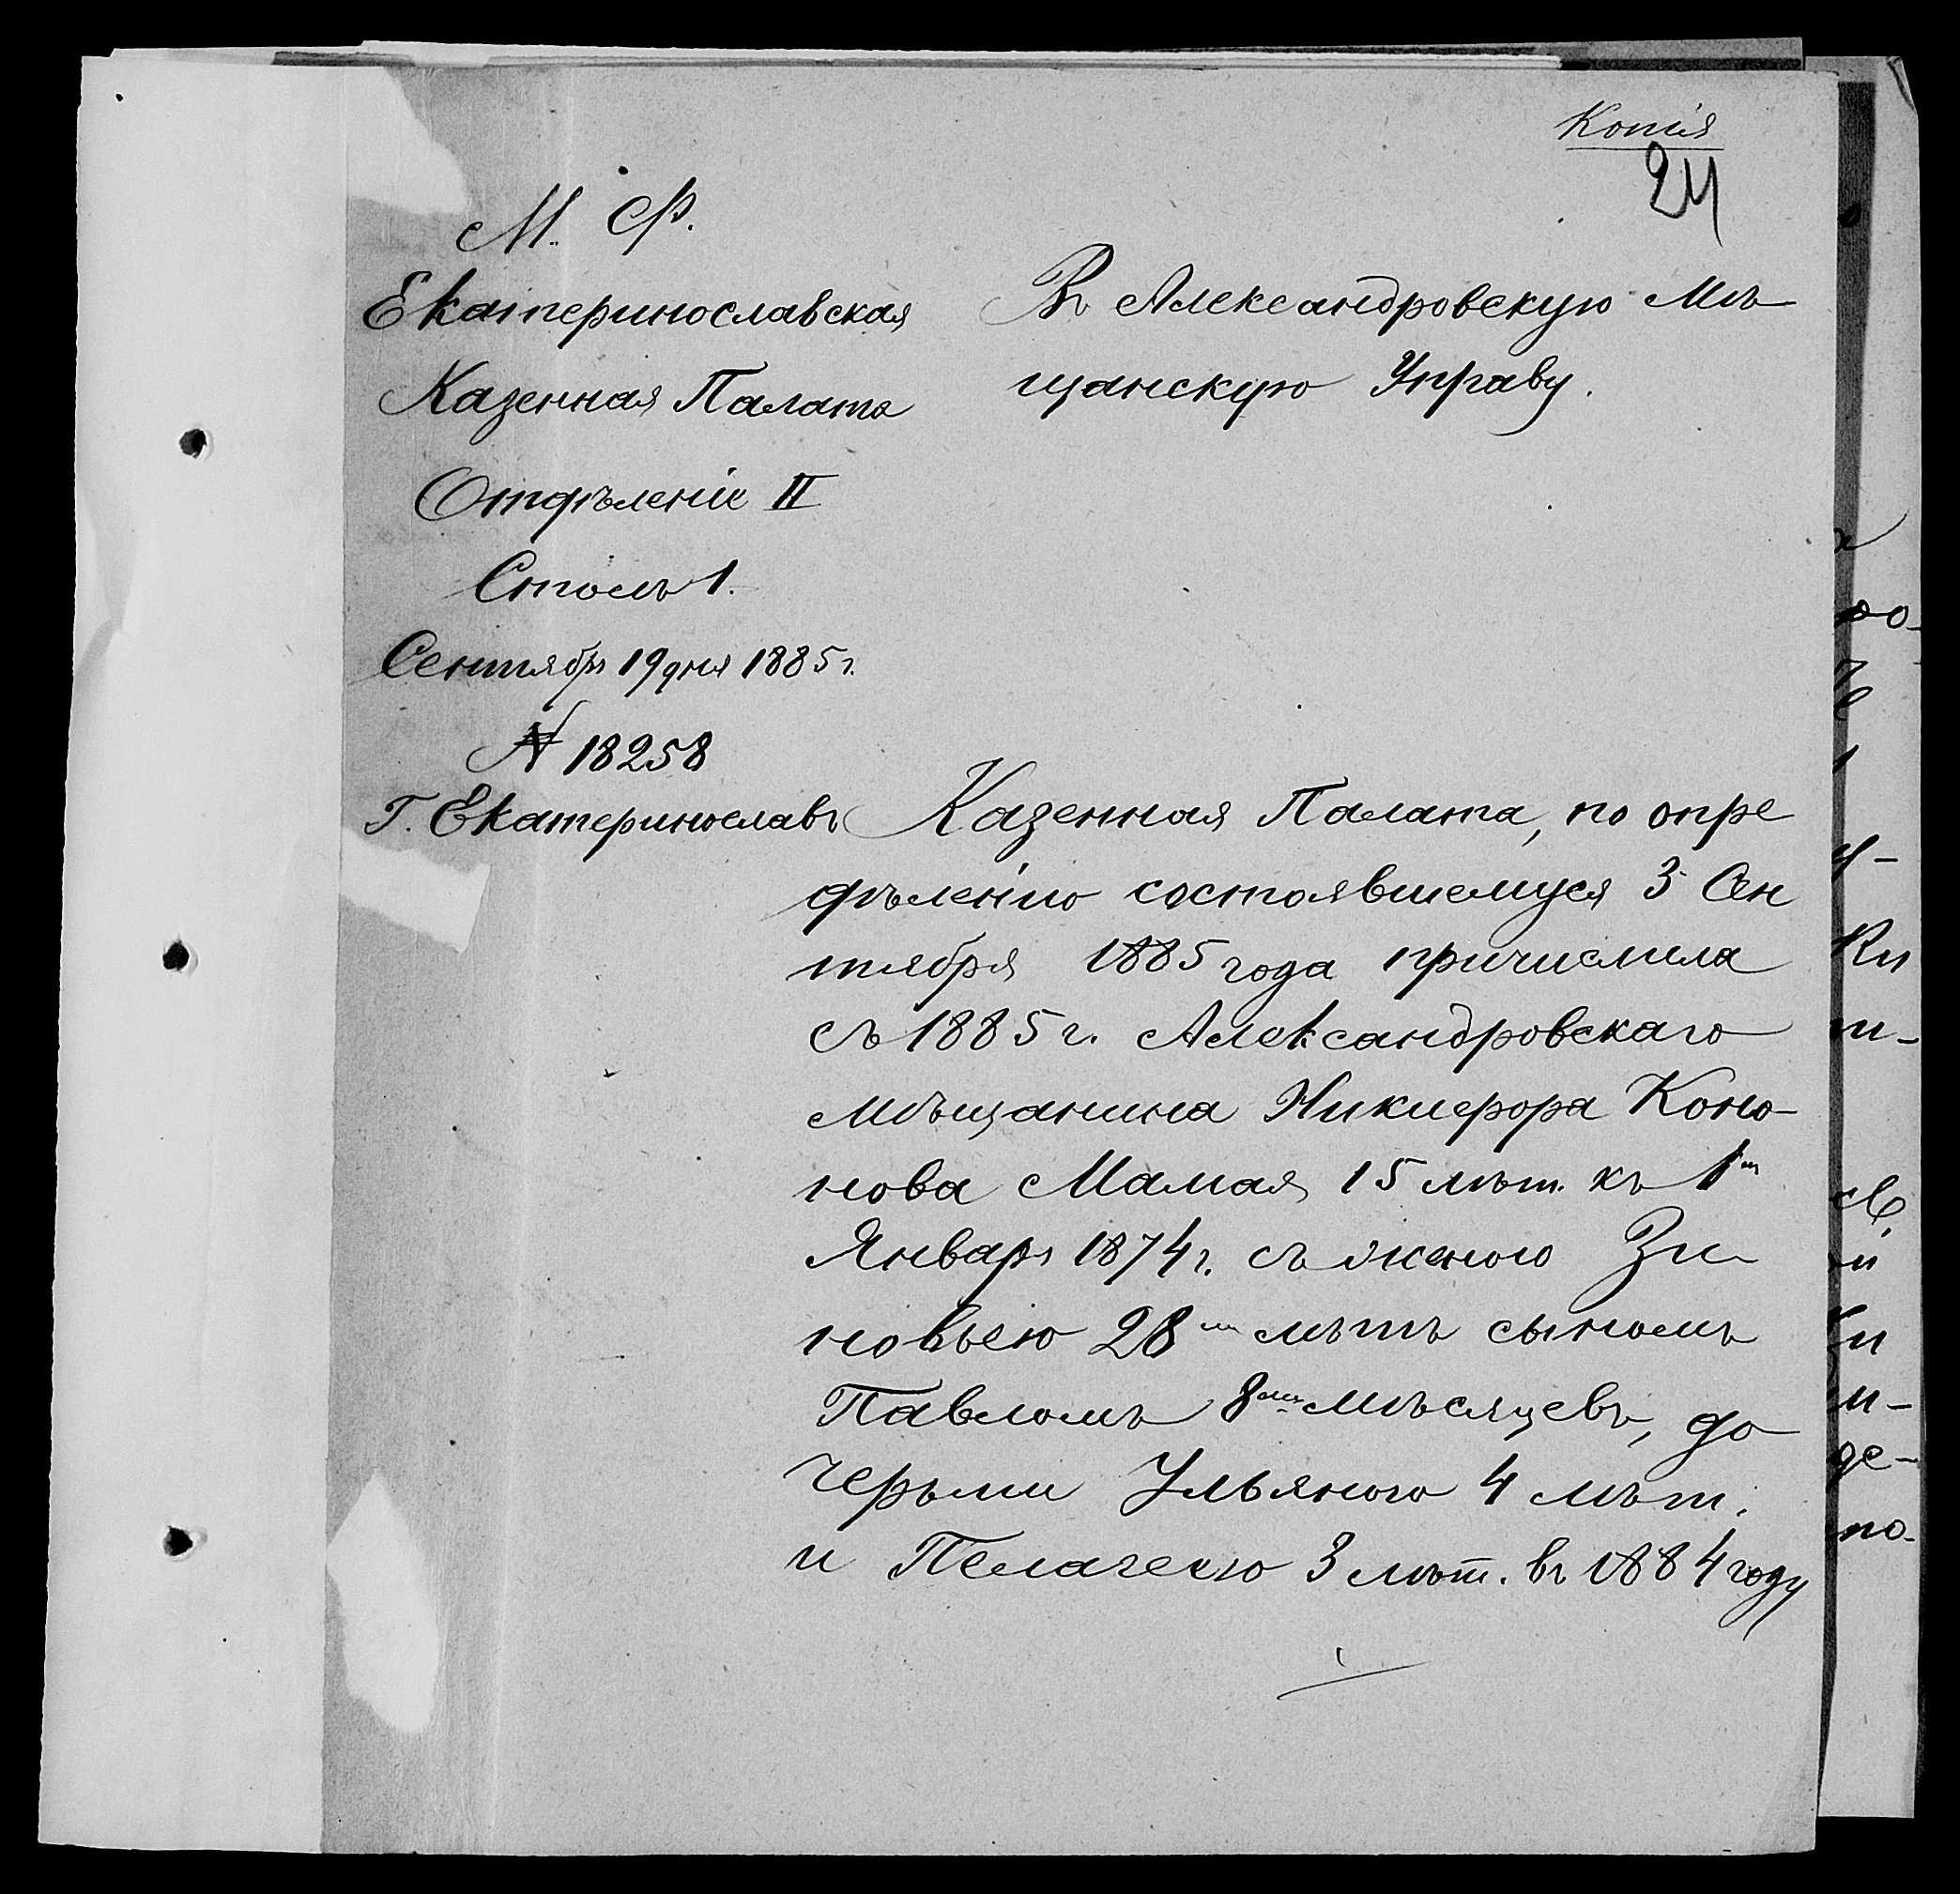 Копія
24
М. Ф.
Екатеринославская
Казенная Палата
Отдѣленіе II
Столъ 1.
Сентября 19 дня 1885 г.
№ 18258
Г. Екатеринославъ
Въ Александровскую Мѣ
щанскую Управу.
Казенная Палата, по опре
дѣленію состоявшемуся 3 Сен
тября 1885 года причислила
съ 1885 г. Александровскаго
мѣщанина Никифора Коно-
нова Мамая 15 лѣт. къ 1му
Января 1874 г. съ женою Зи
новьею 28ми лѣтъ сыномъ
Павломъ 8ми мѣсяцевъ, до
черьми Ульяною 4 лѣт.
и Пелагеею 3 лѣт. въ 1884 году